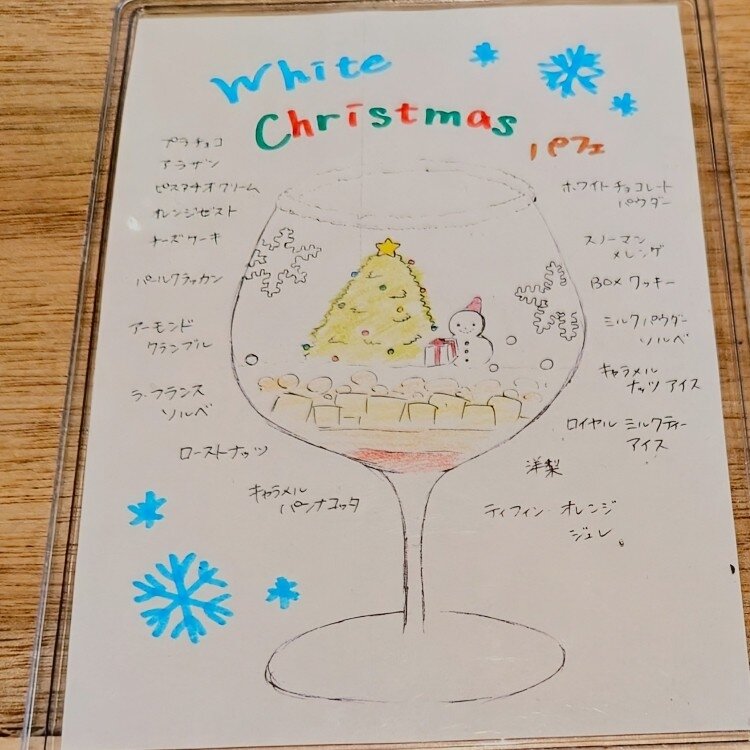 White
Christmas
パフェ
プラチョコ
アラザン
ピスタチオクリーム
オレンジゼスト
チーズケーキ
パールクラッカン
アーモンド
クランブル
ラ・フランス
ソルベ
ローストナッツ
キャラメル
パンナコッタ
ホワイトチョコレート
パウダー
スノーマン
メレンゲ
BOXクッキー
ミルクパウダー
ソルベ
キャラメル
ナッツアイス
ロイヤルミルクティー
アイス
洋梨
ティフィン・オレンジ
ジュレ